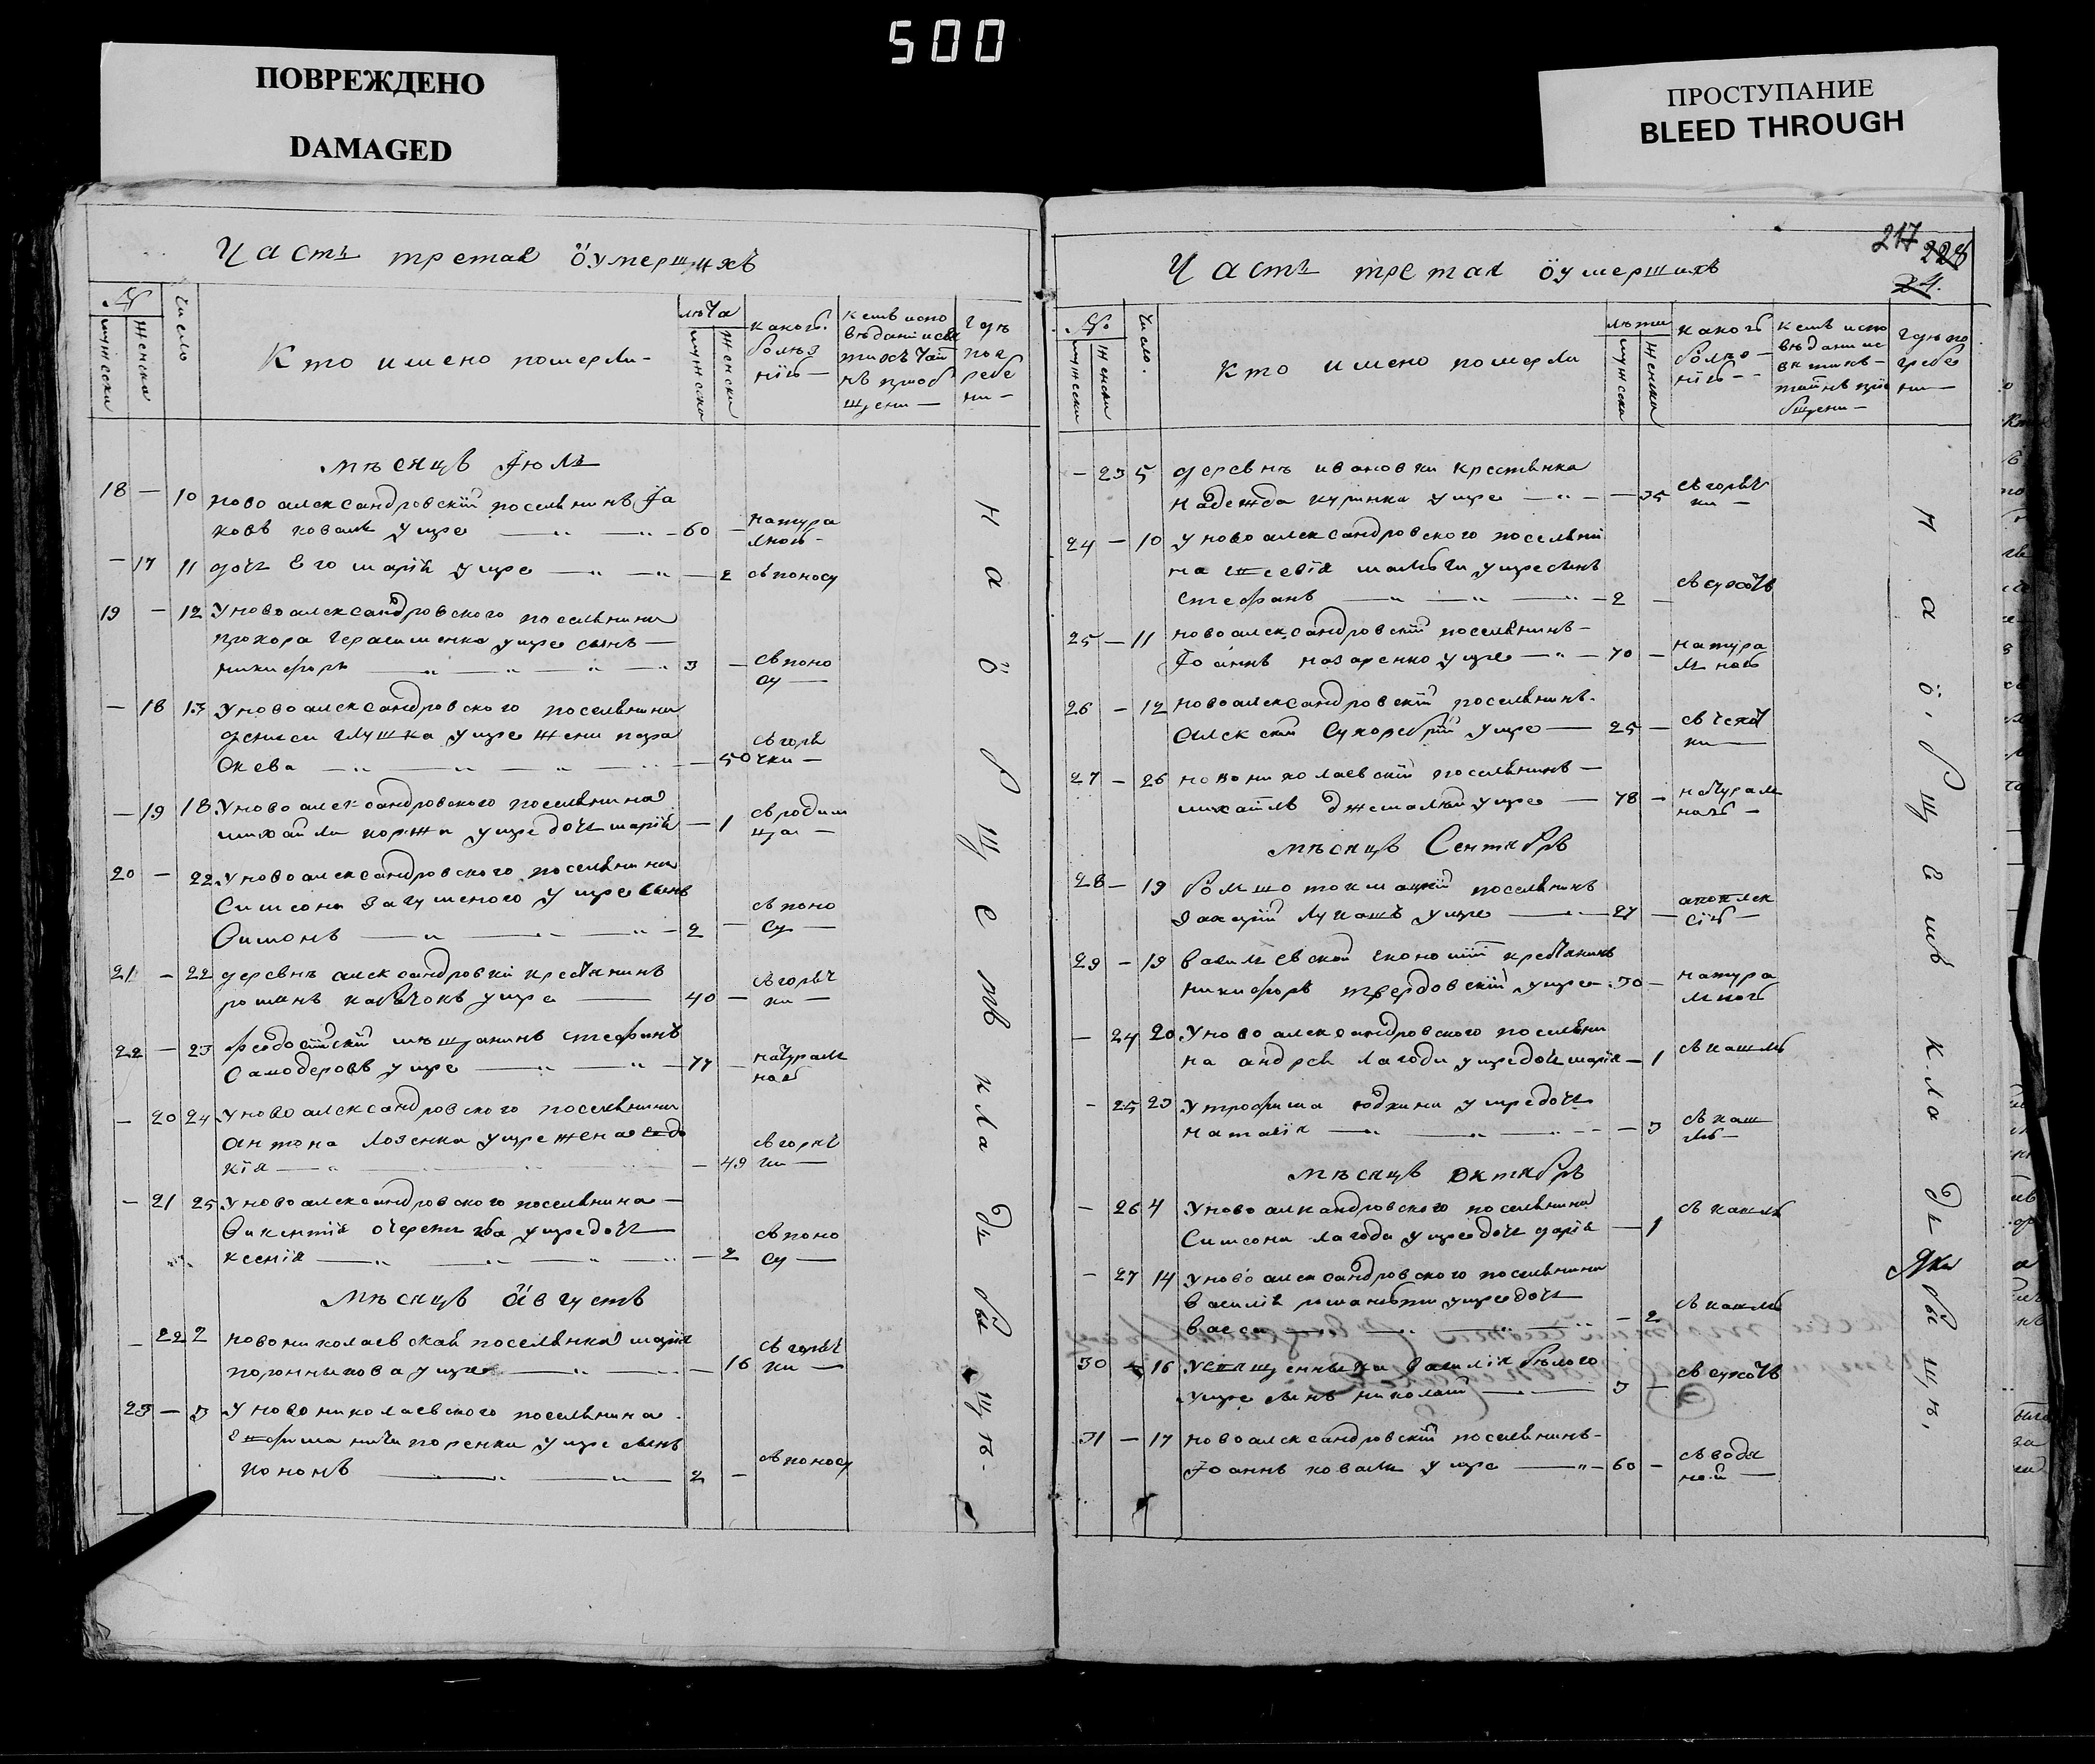 500
ПОВРЕЖДЕНО
DAMAGED
ПРОСТУПАНИЕ
BLEED THROUGH
Часть третая о умершихъ
№
мужеска
женска
число
Кто имено померли-
лѣта
мужеска
женска
какою
болѣз
нію —
кемъ испо
вѣданы и свя
тихъ таи
нъ приоб
щени —
гдѣ
пог
ребе
ни —
мѣсяцъ Іюль
18 — 10 ново александровскій поселянинъ Іа
ковъ коваль умре — 60 — натура
лною -
— 17 11 дочь Его марія умре — 2 съ поносу
19 — 12 Уновоалександровского поселянина
прохора Герасименка умре сынъ —
никифоръ — 3 — съ поно
су —
— 18 13 Уновоалександровского поселянина
дениса глушка умре жена пара
скева — 50 съ горя
чки —
— 19 18 Уновоалександровского поселянина
михаила коржа умре дочь марія — 1 съ родим
ца —
20 — 22 Уновоалександровского поселянина
Симеона умре сынъ
Симонъ — 2 — съ поно
су —
21 — 22 деревнѣ александровки крестянинъ
романъ кабачокъ умре — 40 — съ горяч
ки —
22 — 23 феодосійскій мѣщанинъ стефанъ
Самодеровъ умре — 77 — натурал
ною
— 20 24 Уновоалександровского поселянина
антона лозенка умре жена евдо
кія — 49 съ горяч
ки —
— 21 25 Уновоалександровского поселянина —
Викентія умре дочь
ксенія — 2 съ поно
су —
мѣсяцъ августъ
— 22 2 новониколаевская поселянка марія
умре — 16 съ горяч
ки —
23 — 3 Уновониколаевского поселянина
Ефима ничипоренка умре сынъ
кононъ — 2 — съ поносу
на общемъ кладбыщѣ-
217 228
24.
Часть третая о умершихъ
№.
мужески
женски
число.
Кто имено померли
лѣта
мужеска
женска
какою
болѣз
нію —
кемъ испо
вѣдани
таинъ прио
бщени —
гдѣ по
гребе
ни —
— 23 5 деревнѣ ивановки крестянка
надежда куринка умре — 35 съ горяч
ки —
24 — 10 Уновоалександровского поселяни
на умре сынъ
стефанъ — 2 — съ сухотъ
25 — 11 новоалександровскій поселянинъ-
Іоаннъ назаренко умре — 70 — натура
лною
26 — 12 новоалександровскій поселянинъ-
алексій Сухоребрій умре — 25 — съ чехот
ки —
27 — 26 новониколаевскій поселянинъ —
михаилъ умре — 78 — натурал
ною —
мѣсяцъ Сентябръ
28 — 19 болшотокмацкій поселянинъ
Захарій Лукашъ умре — 27 — апоплек
сію —
29 — 19 василевской економіи крестянинъ
никифоръ твердовскій умре — 30 — натура
лною
— 24 20 Уновоалександровского поселяни
на андрея лагоди умре дочь марія — 1 съ кашлю
— 25 23 Утрофима юдкина умре дочь
наталія — 3 съ каш
лю —
мѣсяцъ октябръ
— 26 4 Уновоалкандровского поселянина
Симеона лагоди умре дочь дарія — 1 съ кашля
— 27 14 Уновоалександровского поселянина
василія умре дочь
васса — 2 съ кашлю
30 — 16 Усвященныка василія бѣлого
умре сынъ николай — 3 — съ сухотъ
31 — 17 новоалександровскій поселянинъ-
Іоаннъ коваль умре — 60 — съ водя
ной —
на общемъ кладбыщѣ,